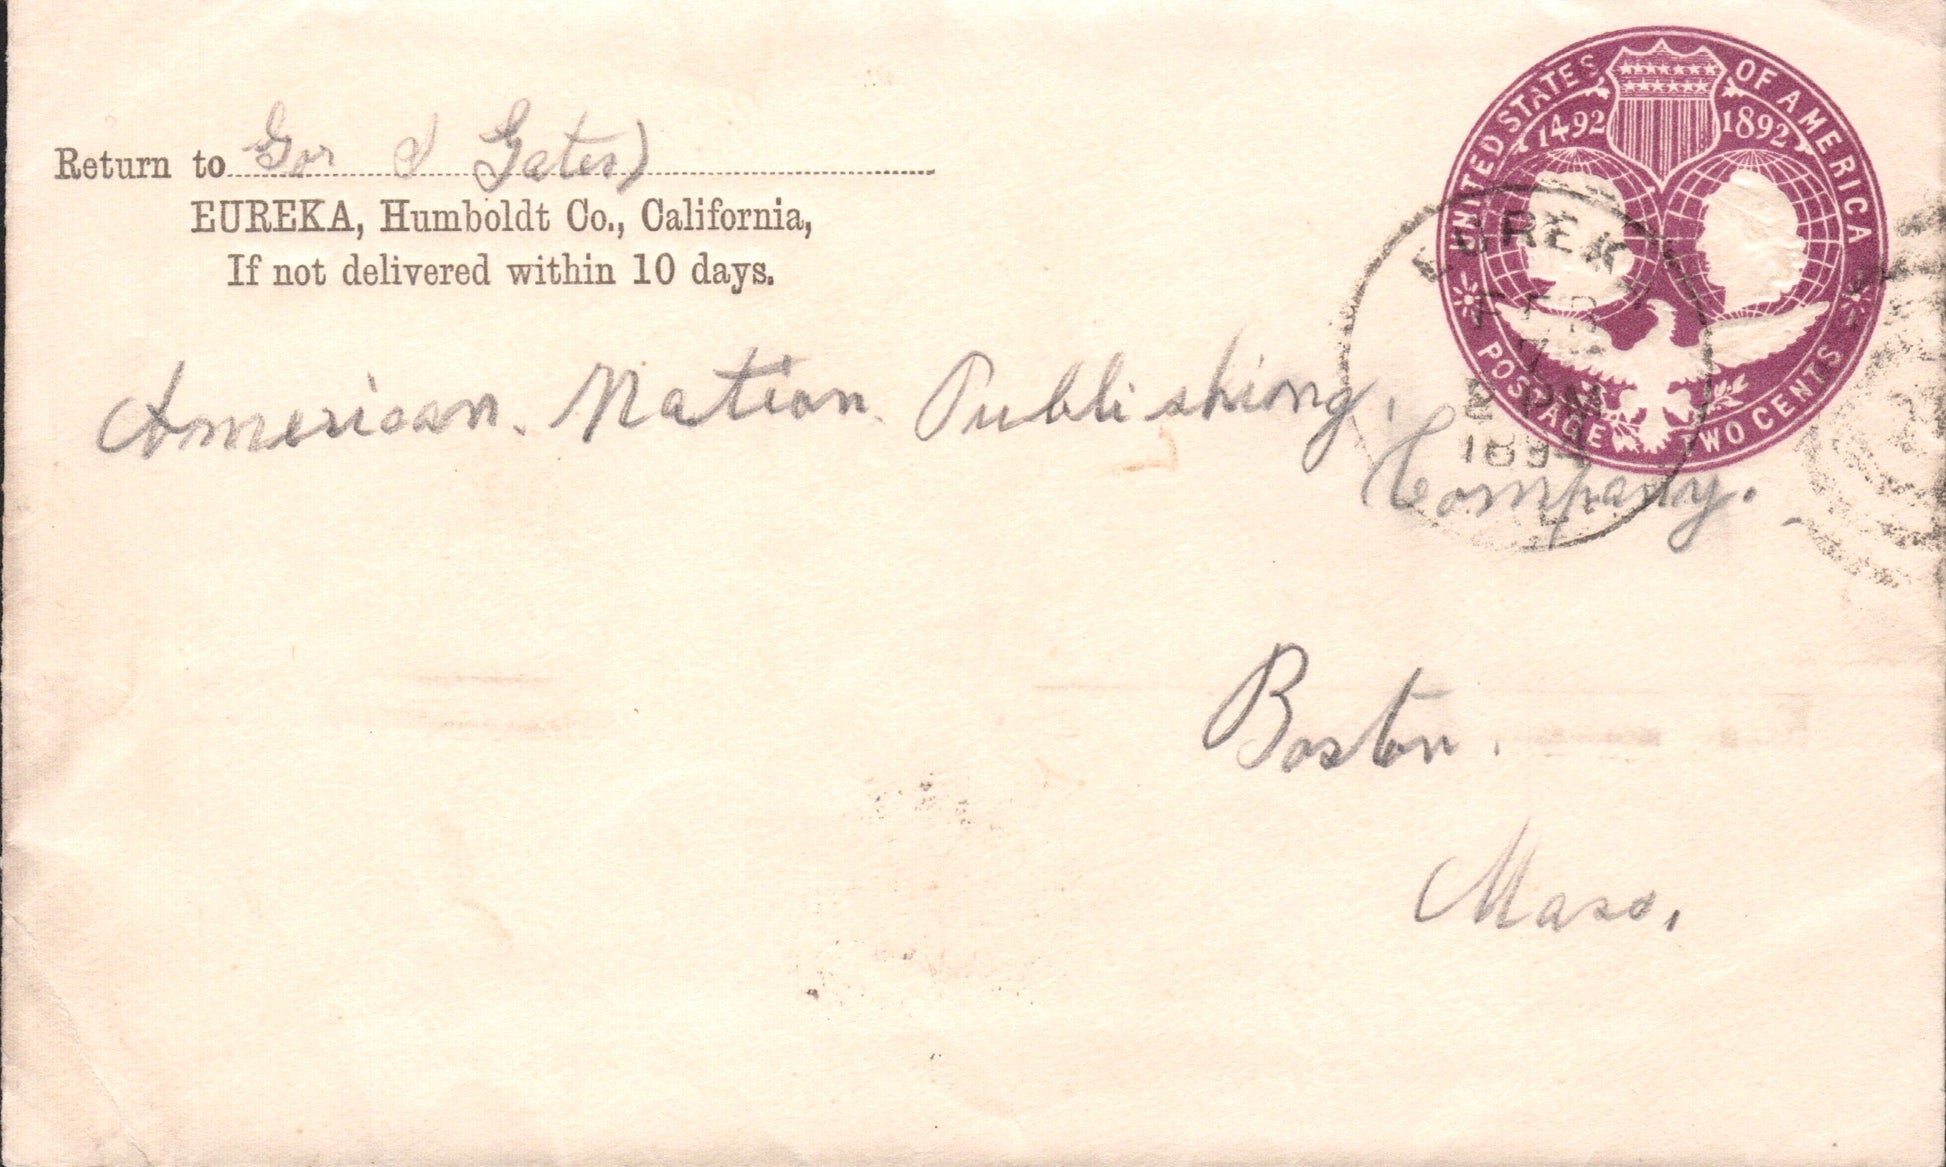 Return to Gates
EUREKA, Humboldt Co., California,
If not delivered within 10 days.
UNITED STATES OF AMERICA
1492 1892
POSTAGE TWO CENTS
EUREKA
FEB
7
PM
1894
American. Nation Publishing.
Company.
Boston.
Mass.